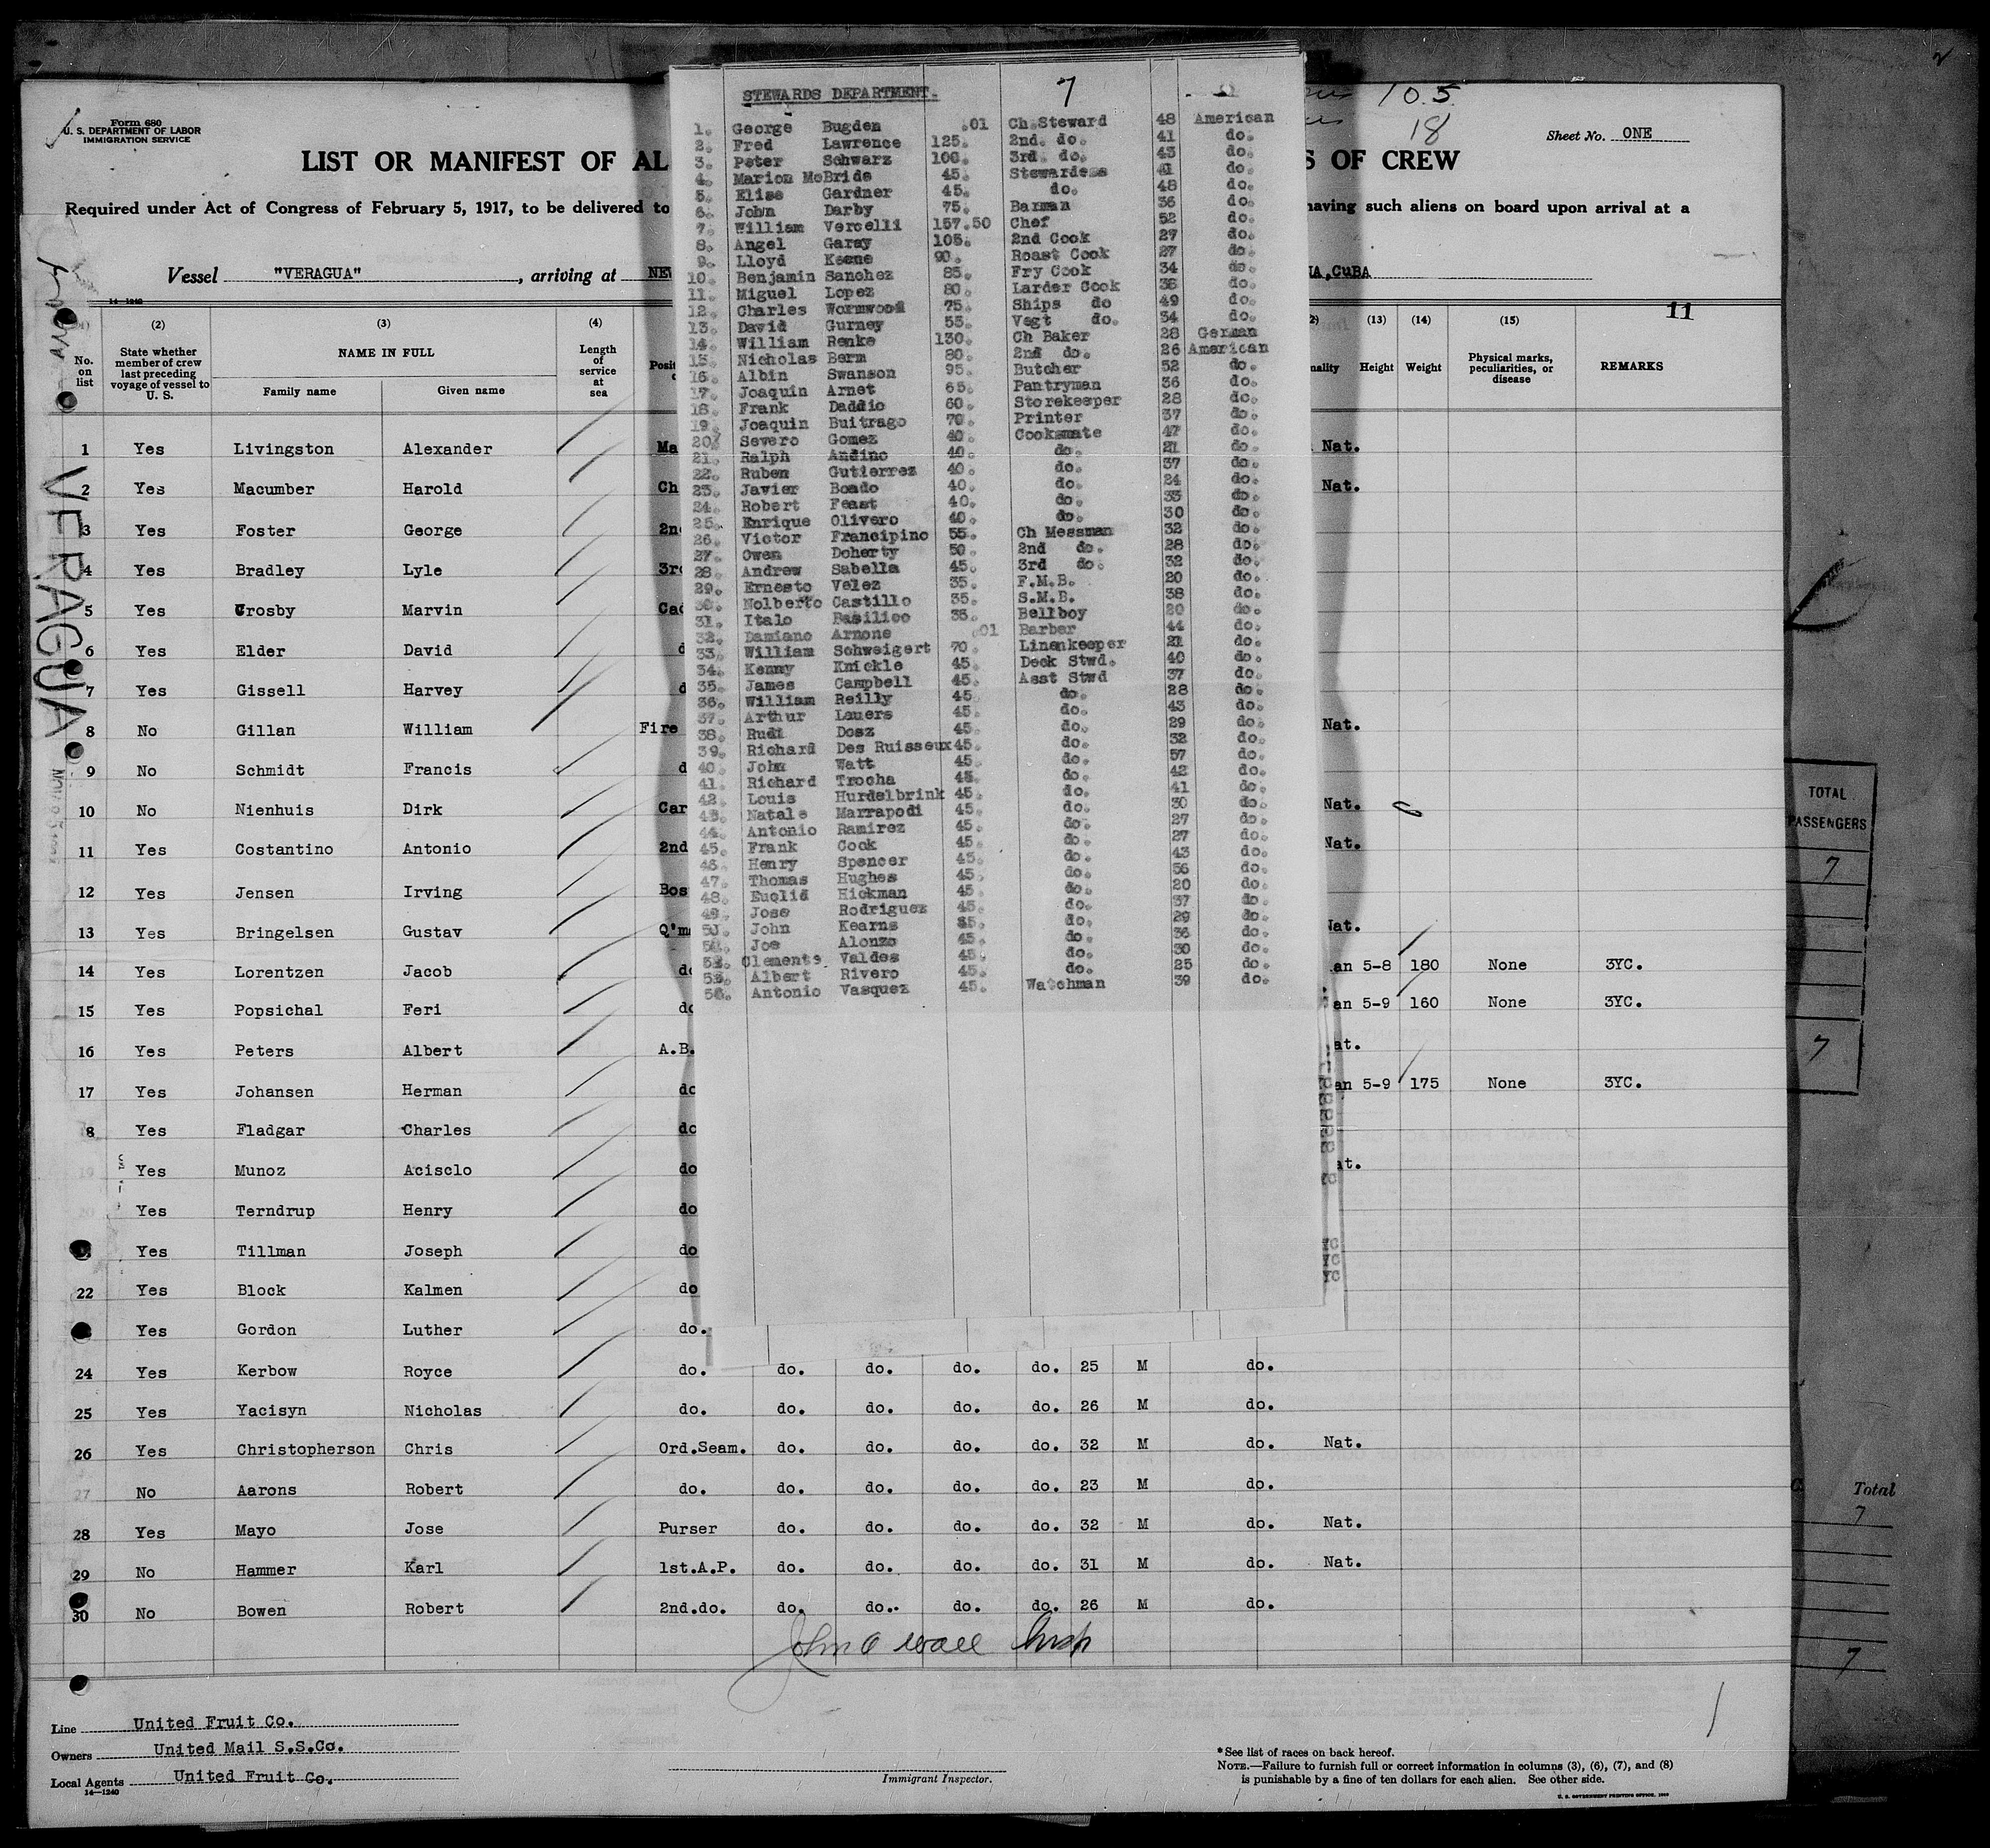 Form 680
U. S. DEPARTMENT OF LABOR
IMMIGRATION SERVICE
LIST OR MANIFEST OF AL
S OF CREW
Sheet No. ONE
10.5
18
Required under Act of Congress of February 5, 1917, to be delivered to
having such aliens on board upon arrival at a
Vessel "VERAGUA", arriving at NEW
NA, CUBA
11
14—1240
(2) (3) (4) (13) (14) (15)
No. on list
State whether member of crew last preceding voyage of vessel to U. S.
NAME IN FULL
Family name Given name
Length of service at sea
Height Weight
Physical marks, peculiarities, or disease
REMARKS
VERAGUA
1 Yes Livingston Alexander Ma Nat.
2 Yes Macumber Harold Ch Nat.
3 Yes Foster George 2n
4 Yes Bradley Lyle 3r
5 Yes Crosby Marvin Cad
6 Yes Elder David d
7 Yes Gissell Harvey d
8 No Gillan William Fire Nat.
9 No Schmidt Francis d
10 No Nienhuis Dirk Car Nat.
11 Yes Costantino Antonio 2nd Nat.
12 Yes Jensen Irving Bos
13 Yes Bringelsen Gustav Q'm Nat.
14 Yes Lorentzen Jacob do an 5-8 180 None 3YC.
15 Yes Popsichal Feri do an 5-9 160 None 3YC.
16 Yes Peters Albert A.B. at.
17 Yes Johansen Herman do an 5-9 175 None 3YC.
8 Yes Fladgar Charles do
19 Yes Munoz Acisclo do at.
20 Yes Terndrup Henry do
Yes Tillman Joseph do
22 Yes Block Kalmen do
Yes Gordon Luther do.
24 Yes Kerbow Royce do. do. do. do. do. 25 M do.
25 Yes Yacisyn Nicholas do. do. do. do. do. 26 M do.
26 Yes Christopherson Chris Ord.Seam. do. do. do. do. 32 M do. Nat.
27 No Aarons Robert do. do. do. do. do. 23 M do.
28 Yes Mayo Jose Purser do. do. do. do. 32 M do. Nat.
29 No Hammer Karl 1st.A.P. do. do. do. do. 31 M do. Nat.
30 No Bowen Robert 2nd.do. do. do. do. do. 26 M do.
STEWARDS DEPARTMENT.
7
1. George Bugden .01 Ch.Steward 48 American
2. Fred Lawrence 125. 2nd. do. 41 do.
3. Peter Schwarz 100. 3rd. do. 43 do.
4. Marion McBride 45. Stewardess 41 do.
5. Elise Gardner 45. do. 48 do.
6. John Darby 75. Barman 36 do.
7. William Vercelli 157.50 Chef 52 do.
8. Angel Garay 105. 2nd Cook 27 do.
9. Lloyd Keene 90. Roast Cook 27 do.
10. Benjamin Sanchez 85. Fry Cook 34 do.
11. Miguel Lopez 80. Larder Cook 36 do.
12. Charles Wormwood 75. Ships do 49 do.
13. David Gurney 55. Vegt do. 34 do.
14. William Renke 130. Ch Baker 28 German
15. Nicholas Berm 80. 2nd do. 26 American
16. Albin Swanson 95. Butcher 52 do.
17. Joaquin Arnet 65. Pantryman 36 do.
18. Frank Daddio 60. Storekeeper 28 do.
19. Joaquin Buitrago 70. Printer 37 do.
20. Severo Gomez 40. Cooksmate 47 do.
21. Ralph Andino 40. do. 21 do.
22. Ruben Gutierrez 40. do. 37 do.
23. Javier Boado 40. do. 24 do.
24. Robert Feast 40. do. 35 do.
25. Enrique Olivero 40. do. 30 do.
26. Victor Francipino 55. Ch Messman 32 do.
27. Owen Doherty 50. 2nd do. 28 do.
28. Andrew Sabella 45. 3rd do. 32 do.
29. Ernesto Velez 35. F.M.B. 20 do.
30. Nolberto Castillo 35. S.M.B. 38 do.
31. Italo Basilico 35. Bellboy 20 do.
32. Damiano Arnone .01 Barber 44 do.
33. William Schweigert 70. Linenkeeper 21 do.
34. Kenny Knickle 45. Deck Stwd. 40 do.
35. James Campbell 45. Asst Stwd 37 do.
36. William Reilly 45. do. 28 do.
37. Arthur Lauers 45. do. 43 do.
38. Rudi Dosz 45. do. 29 do.
39. Richard Des Ruisseux 45. do. 32 do.
40. John Watt 45. do. 57 do.
41. Richard Trocha 45. do. 42 do.
42. Louis Hurdelbrink 45. do. 41 do.
43. Natale Marrapodi 45. do. 30 do.
44. Antonio Ramirez 45. do. 27 do.
45. Frank Cook 45. do. 27 do.
46. Henry Spencer 45. do. 43 do.
47. Thomas Hughes 45. do. 56 do.
48. Euclid Hickman 45. do. 20 do.
49. Jose Rodriguez 45. do. 37 do.
50. John Kearns 45. do. 29 do.
51. Joe Alonzo 45. do. 36 do.
52. Clemente Valdes 45. do. 30 do.
53. Albert Rivero 45. do. 25 do.
54. Antonio Vasquez 45. Watchman 39 do.
YC
YC
YC
TOTAL
PASSENGERS
7
7
Total
7
7
Line United Fruit Co.
Owners United Mail S.S.Co.
Local Agents United Fruit Co.
14—1240
Immigrant Inspector.
* See list of races on back hereof.
NOTE.—Failure to furnish full or correct information in columns (3), (6), (7), and (8)
is punishable by a fine of ten dollars for each alien. See other side.
U. S. GOVERNMENT PRINTING OFFICE